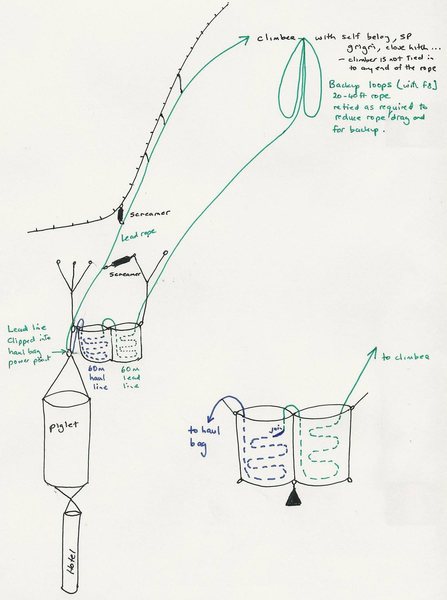 climber — with self belay, SP
grigri, clove hitch...
– climber is not tied in
to any end of the rope
Backup loops [with F8]
20-40ft rope
retied as required to
reduce rope drag and
for backup.
Screamer
Lead rope
Screamer
Lead line
Clipped into
haul bag
power point
60m
haul
line
60m
lead
line
Piglet
Hotel
to climber
to haul
bag
join